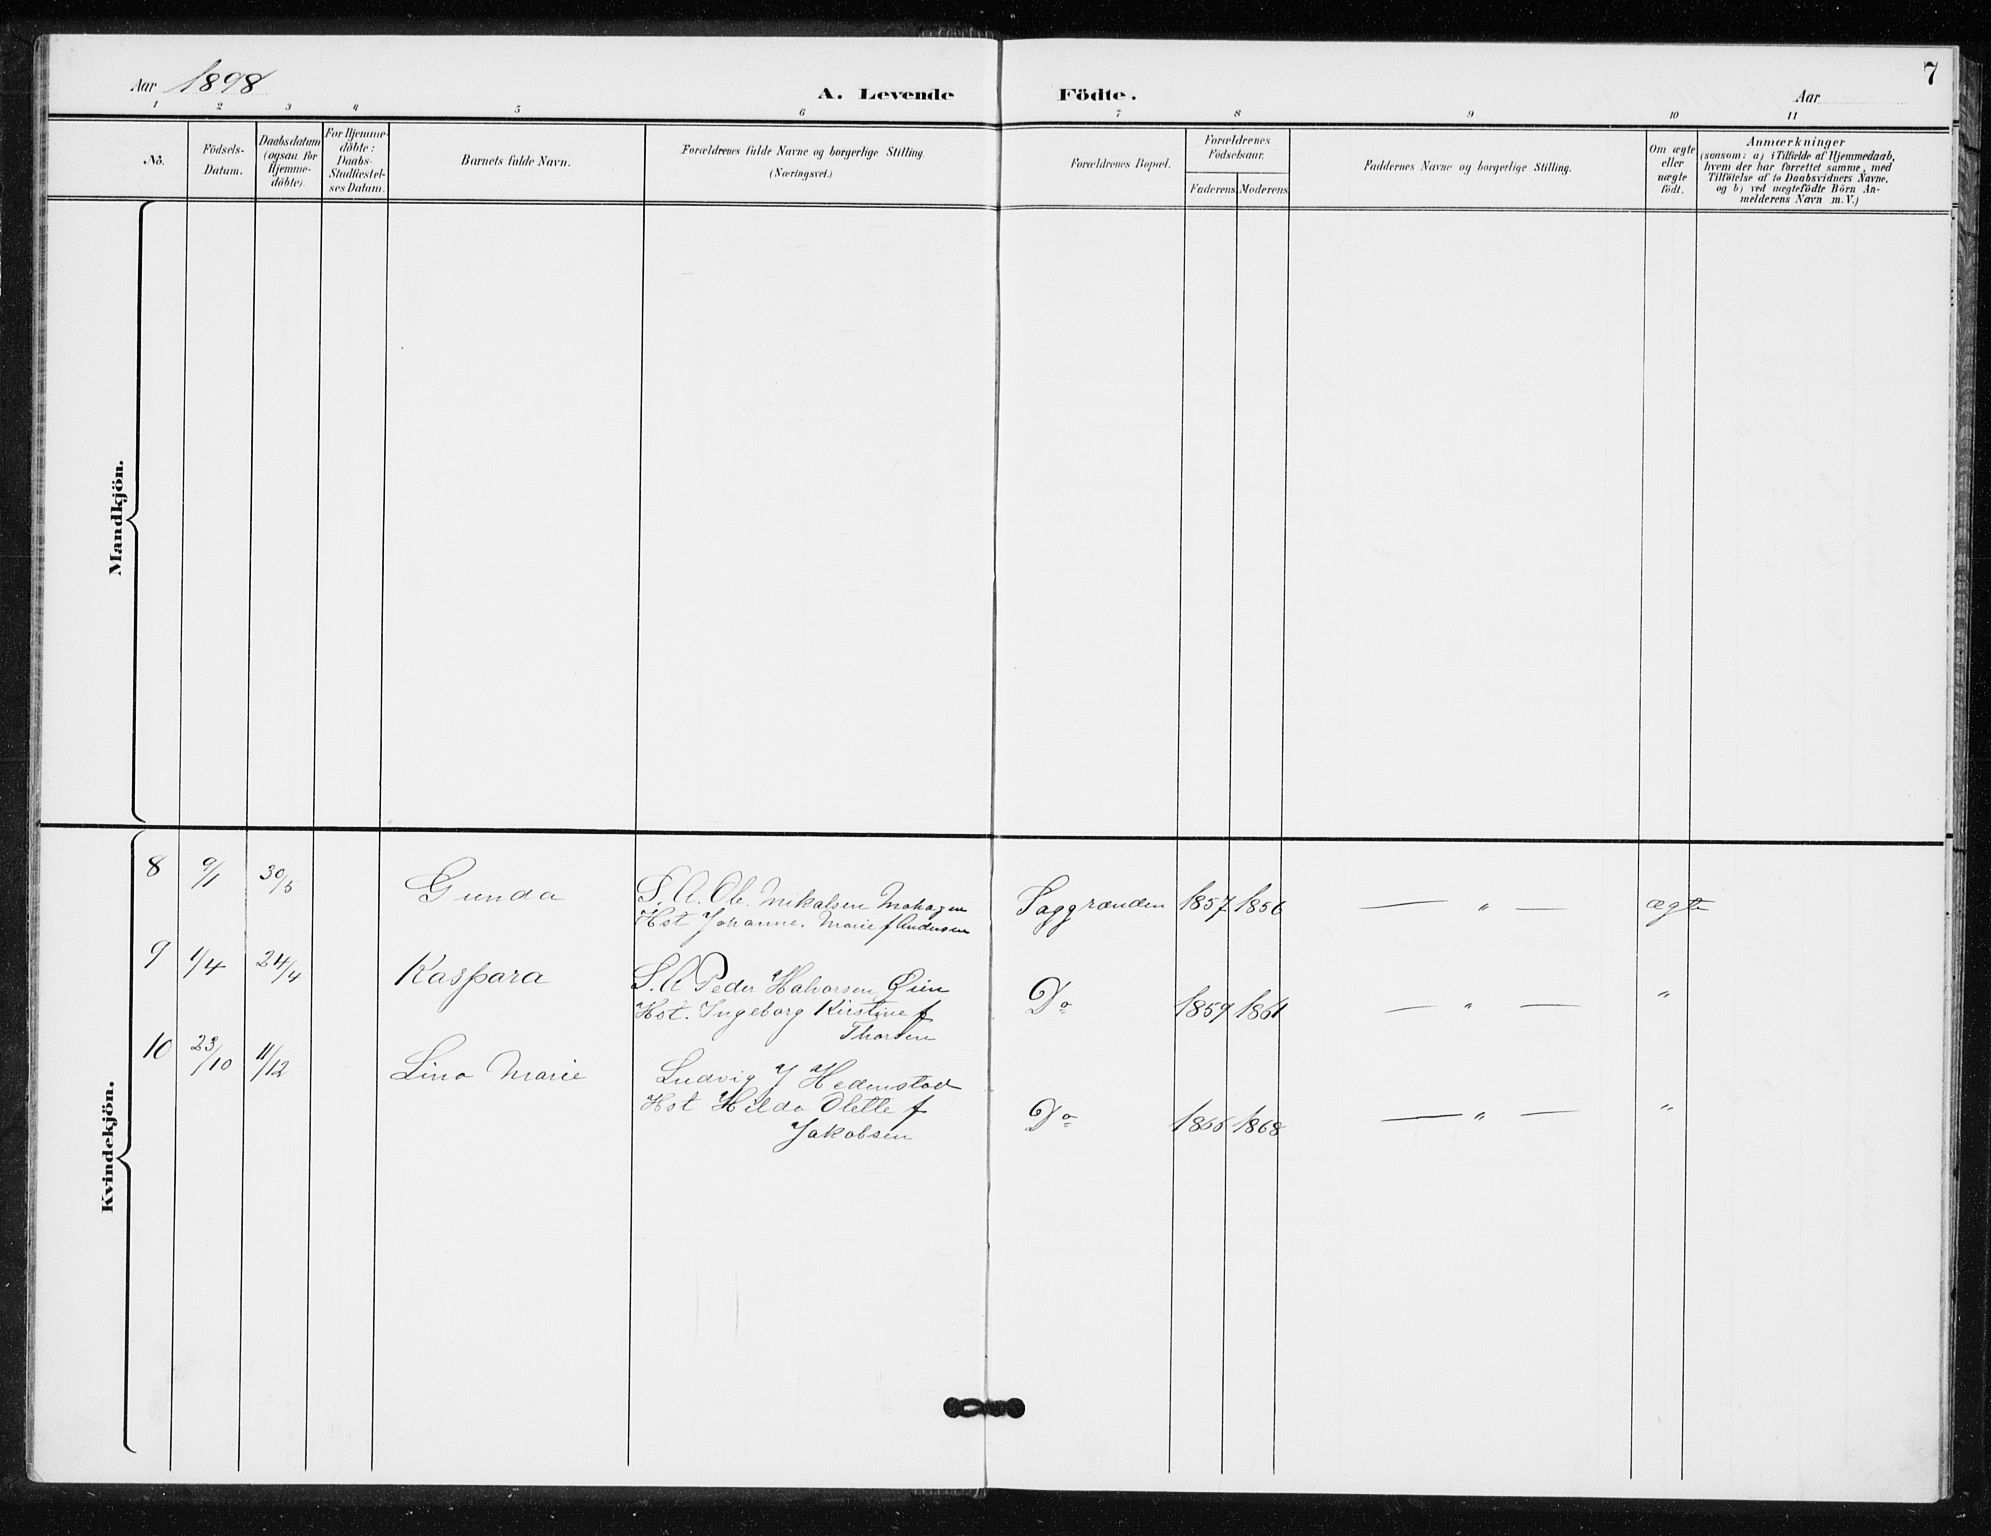 Aar 1898
A. Levende Födte.
Aar
7
1 2 3 4 5 6 7 8 9 10 11
No.
Födsels-
Datum.
Daabsdatum
(ogsaa for
Hjemme-
döbte).
For Hjemme-
döbte:
Daabs-
Stadfæstel-
ses Datum.
Barnets fulde Navn.
Forældrenes fulde Navne og borgerlige Stilling
(Næringsvei.)
Forældrenes Bopæl.
Forældrenes
Födselsaar.
Faderens Moderens
Faddernes Navne og borgerlige Stilling.
Om ægte
eller
uægte
födt.
Anmærkninger
(saasom: a) i Tilfælde af Hjemmedaab,
hvem der har forrettet samme, med
Tilföielse af to Daabsvidners Navne,
og b) ved uægtefödte Börn An-
melderens Navn m. V.)
Mandkjön.
Kvindekjön.
8 9/1 30/5 Gunda S. A. Ole Nikolsen Mohagen
Hst Johanne Marie f Andersen
Saggrænden 1857 1856 — " — ægte
9 1/4 24/4 Kaspara S. A Peder Halvorsen Øien
Hst. Ingeborg Kirstine f
Thorsen
Do 1859 1861 — " — "
10 23/10 11/12 Lina Marie Ludvig J Hedenstad
Hst Hilda Olette f
Jakobsen
Do 1866 1868 — " — "